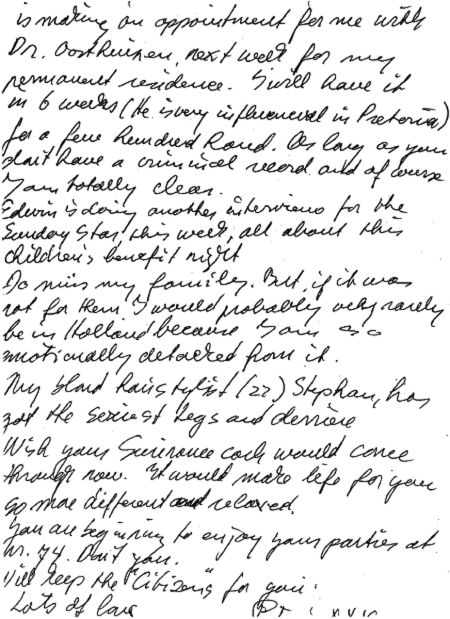 is making an appointment for me with
Dr. Oosthuizen, next week for my
permanent residence. I will have it
in 6 weeks (He is very influencial in Pretoria)
for a few hundred Rand. As long as you
don't have a criminal record and of course
I am totally clear.
Edwin is doing another interview for the
Sunday Star this week, all about this
children's benefit night
Do miss my family. But, if it was
not for them, I would probably very rarely
be in Holland because I am so
emotionally detached from it.
My blond hairstylist (27) Stephan, has
got the sexiest legs and derriere
Wish your cash would come
through now. It would make life for you
so more different and relaxed.
You are beginning to enjoy your parties at
nr. 74. Don't you.
Will keep the "Citizens" for you.
Lots of love